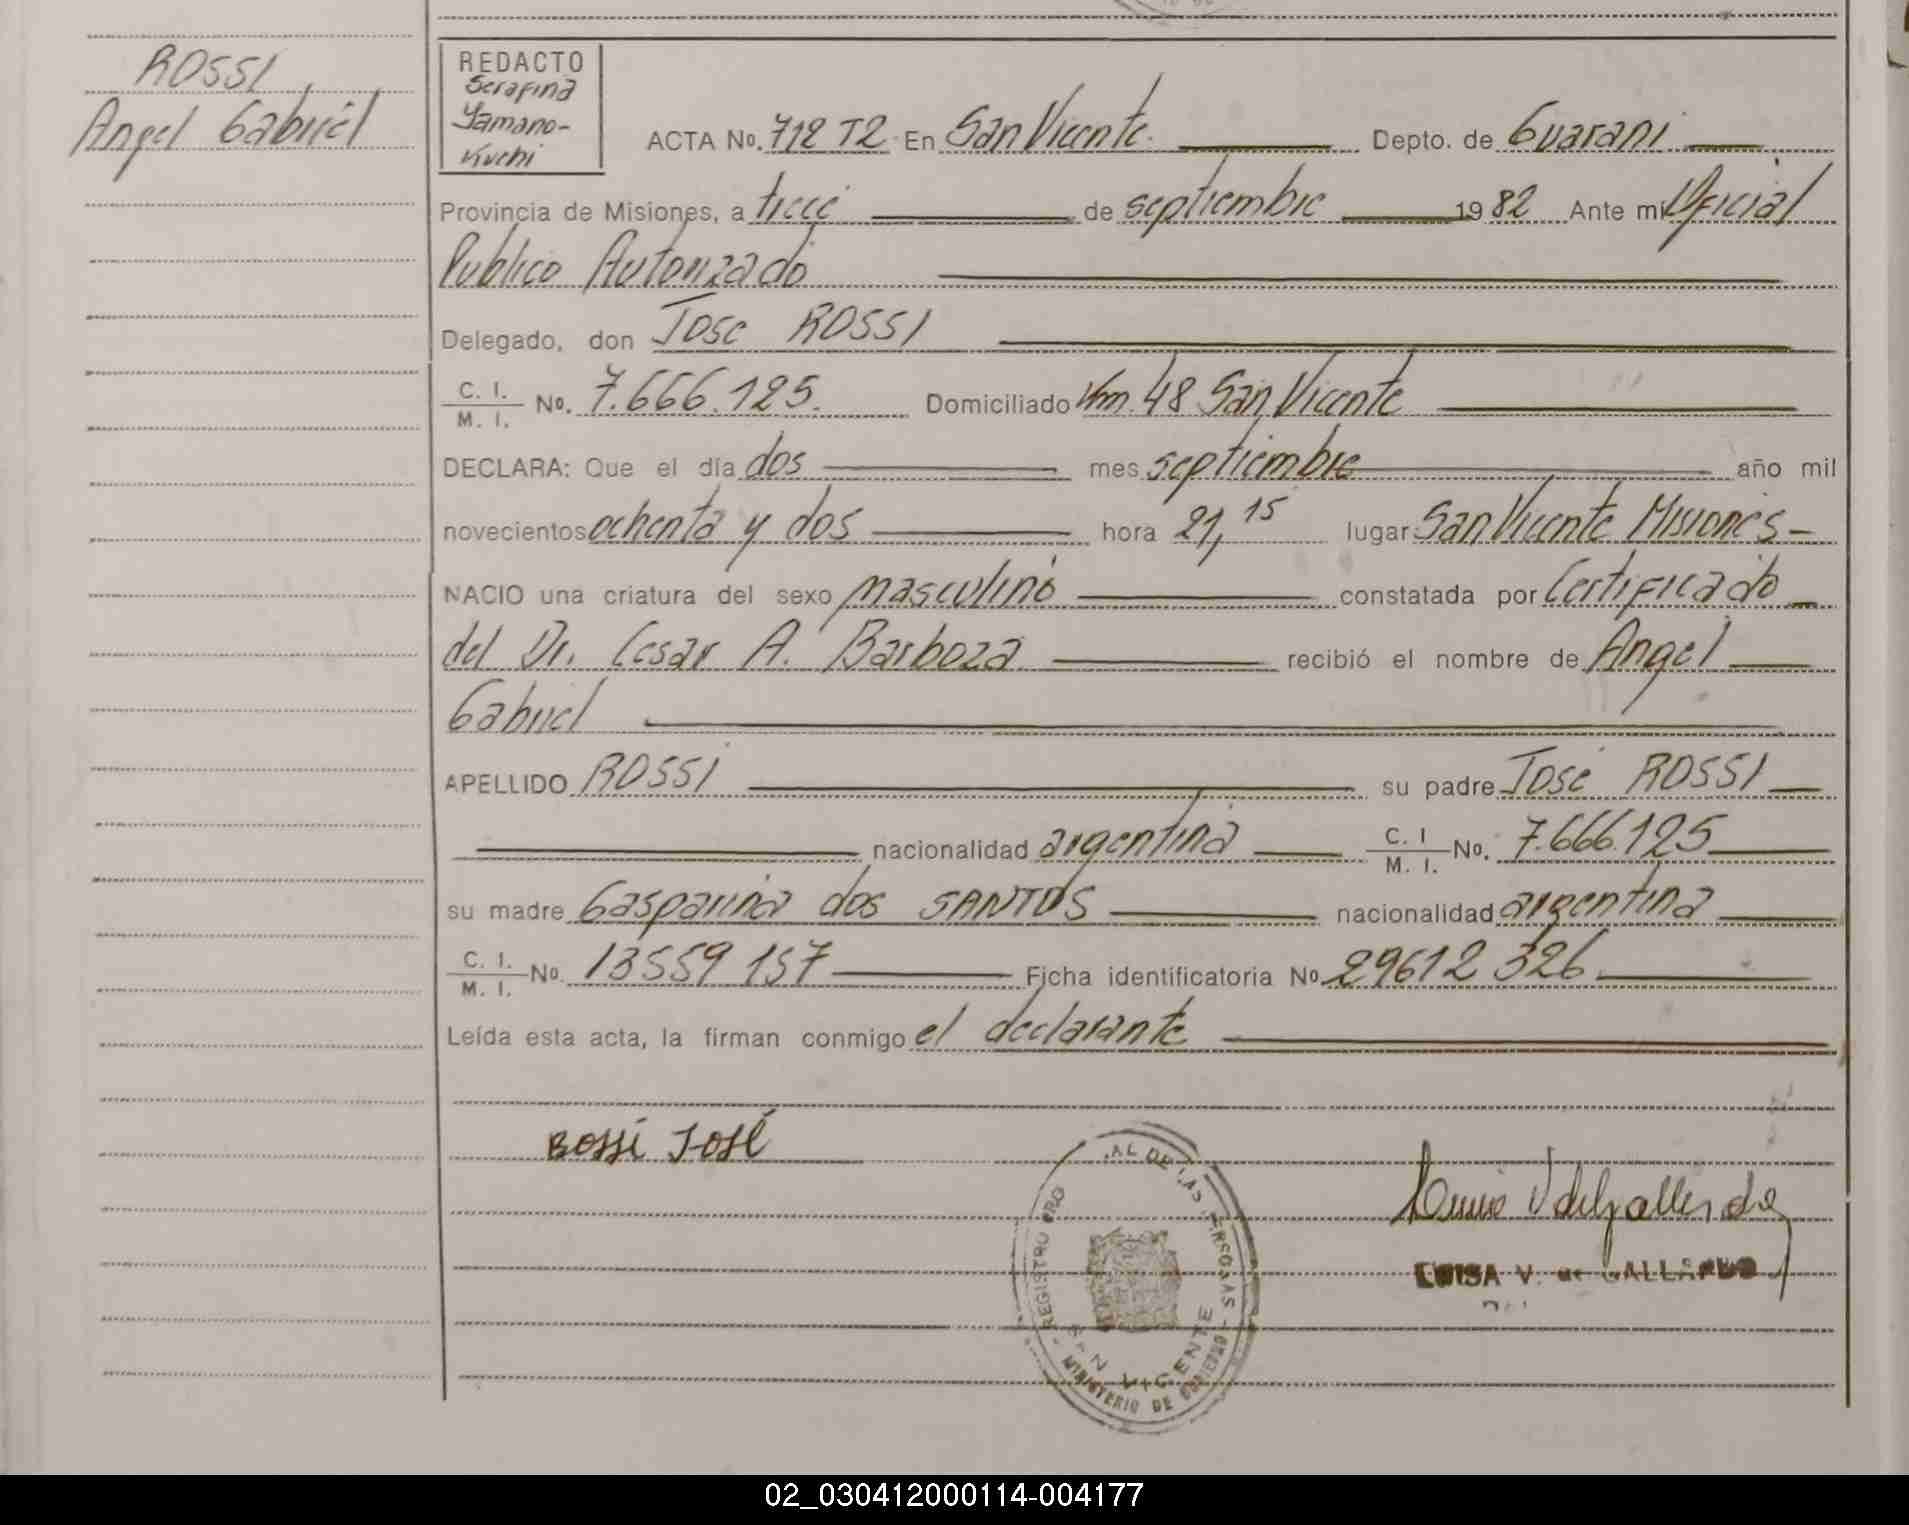 ROSSI
Angel Gabriel
REDACTO
Serafina
Yamano-
Kuchi
ACTA No. 712 T2 En San Vicente. Depto. de Guarani
Provincia de Misiones, a trece de septiembre 1982 Ante mi Oficial
Publico Autorizado
Delegado, don Jose ROSSI
C. I. / M. I. No. 7.666.125. Domiciliado Km. 48 San Vicente
DECLARA: Que el día dos mes septiembre año mil
novecientos ochenta y dos hora 21,15 lugar San Vicente Misiones-
NACIO una criatura del sexo masculino constatada por Certificado
del Dr. Cesar A. Barboza recibió el nombre de Angel
Gabriel
APELLIDO ROSSI su padre José ROSSI
nacionalidad argentina C. I / M. I. No. 7.666.125
su madre Gasparina dos SANTOS nacionalidad argentina
C. I. / M. I. No. 13559 157 Ficha identificatoria No 29612 326
Leída esta acta, la firman conmigo el declarante
ROSSI JOSÉ
LUISA V. de GALLARDO
REGISTRO PRO AL DE LAS PERSONAS - MINISTERIO DE GOBIERNO -
SAN VICENTE
02_030412000114-004177